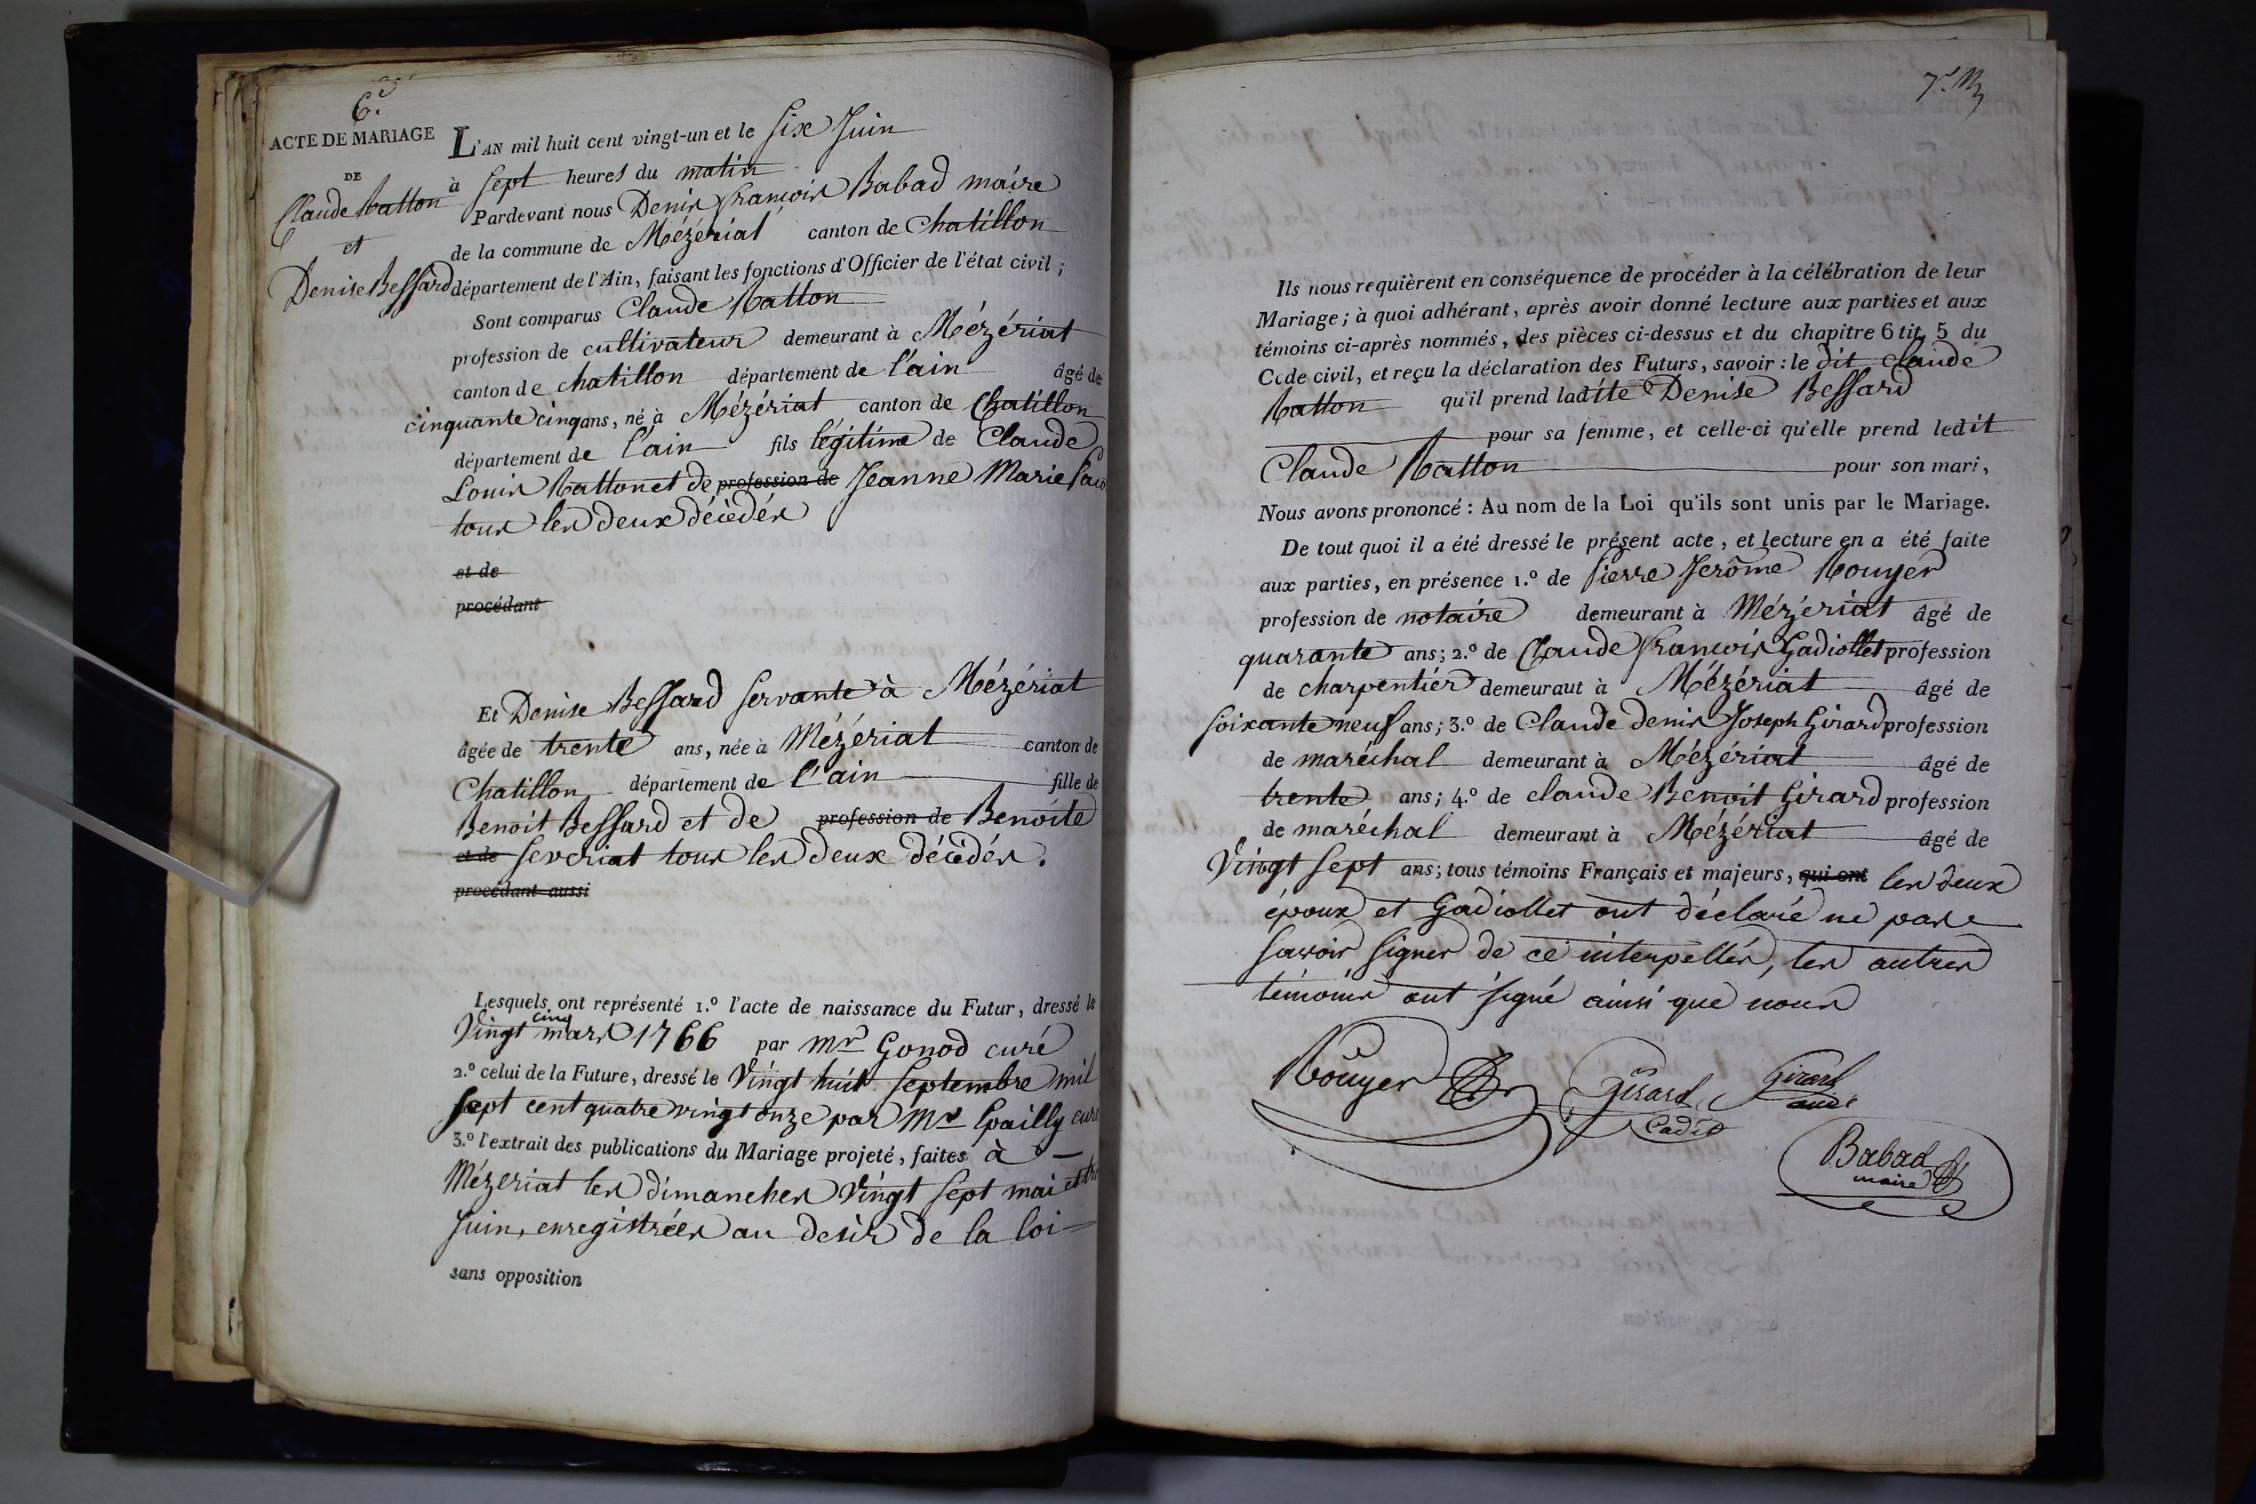 6.e
ACTE DE MARIAGE
DE
Claude Ratton
et
Denise Bessard
L'AN mil huit cent vingt-un et le six Juin
à sept heures du matin
Pardevant nous Denis François Babad maire
de la commune de Mézériat canton de Chatillon
département de l'Ain, faisant les fonctions d'Officier de l'état civil ;
Sont comparus Claude Ratton
profession de cultivateur demeurant à Mézériat
canton de chatillon département de l'ain âgé de
cinquante cinq ans, né à Mézériat canton de Chatillon
département de l'ain fils légitime de Claude
Louis Ratton et de profession de Jeanne Marie
tous les deux décédés
et de
procédant
Et Denise Bessard servante à Mézériat
âgée de trente ans, née à Mézériat canton de
Chatillon département de l'ain fille de
Benoit Bessard et de profession de Benoite
et de severiat tous les deux décédés.
procédant aussi
Lesquels ont représenté 1.º l'acte de naissance du Futur, dressé le
Vingt cinq mars 1766 par mr Gonod curé
2.º celui de la Future, dressé le Vingt huit septembre mil
sept cent quatre vingt onze par Mr Epailly curé
3.º l'extrait des publications du Mariage projeté, faites à
Mézeriat les dimanches Vingt sept mai et
Juin, enregistrées au desir de la loi
sans opposition
Ils nous requièrent en conséquence de procéder à la célébration de leur
Mariage ; à quoi adhérant, après avoir donné lecture aux parties et aux
témoins ci-après nommés, des pièces ci-dessus et du chapitre 6 tit. 5 du
Code civil, et reçu la déclaration des Futurs, savoir : le dit Claude
Ratton qu'il prend ladite Denise Bessard
pour sa femme, et celle-ci qu'elle prend ledit
Claude Ratton pour son mari,
Nous avons prononcé : Au nom de la Loi qu'ils sont unis par le Mariage.
De tout quoi il a été dressé le présent acte, et lecture en a été faite
aux parties, en présence 1.º de Pierre Jerôme Rouyer
profession de notaire demeurant à Mézériat âgé de
quarante ans ; 2.º de Claude François Gadiollet profession
de charpentier demeuraut à Mézériat âgé de
soixante neuf ans ; 3.º de Claude denis Joseph Girard profession
de maréchal demeurant à Mézériat âgé de
trente ans ; 4.º de claude Benoit Girard profession
de maréchal demeurant à Mézériat âgé de
Vingt sept ans ; tous témoins Français et majeurs, qui ont les deux
époux et Gadiollet ont déclaré ne pas
savoir signer de ce interpellés, les autres
témoins ont signé ainsi que nous
Rouyer
Girard
Cadet
Girard
ainé
Babad
maire